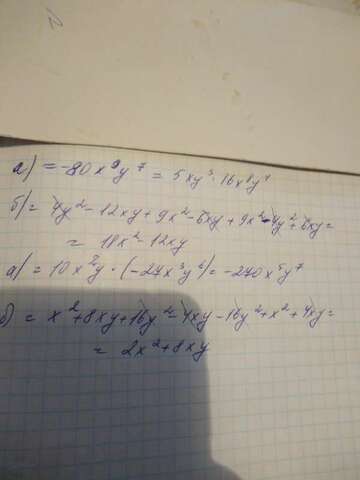 а) = -80x⁹y⁷ = 5xy³ · 16x⁸y⁴
б) = 4y² - 12xy + 9x² - 6xy + 9x² - 4y² + 6xy =
= 18x² - 12xy
а) = 10x²y · (-27x³y⁶) = -270x⁵y⁷
б) = x² + 8xy + 16y² - 4xy - 16y² + x² + 4xy =
= 2x² + 8xy